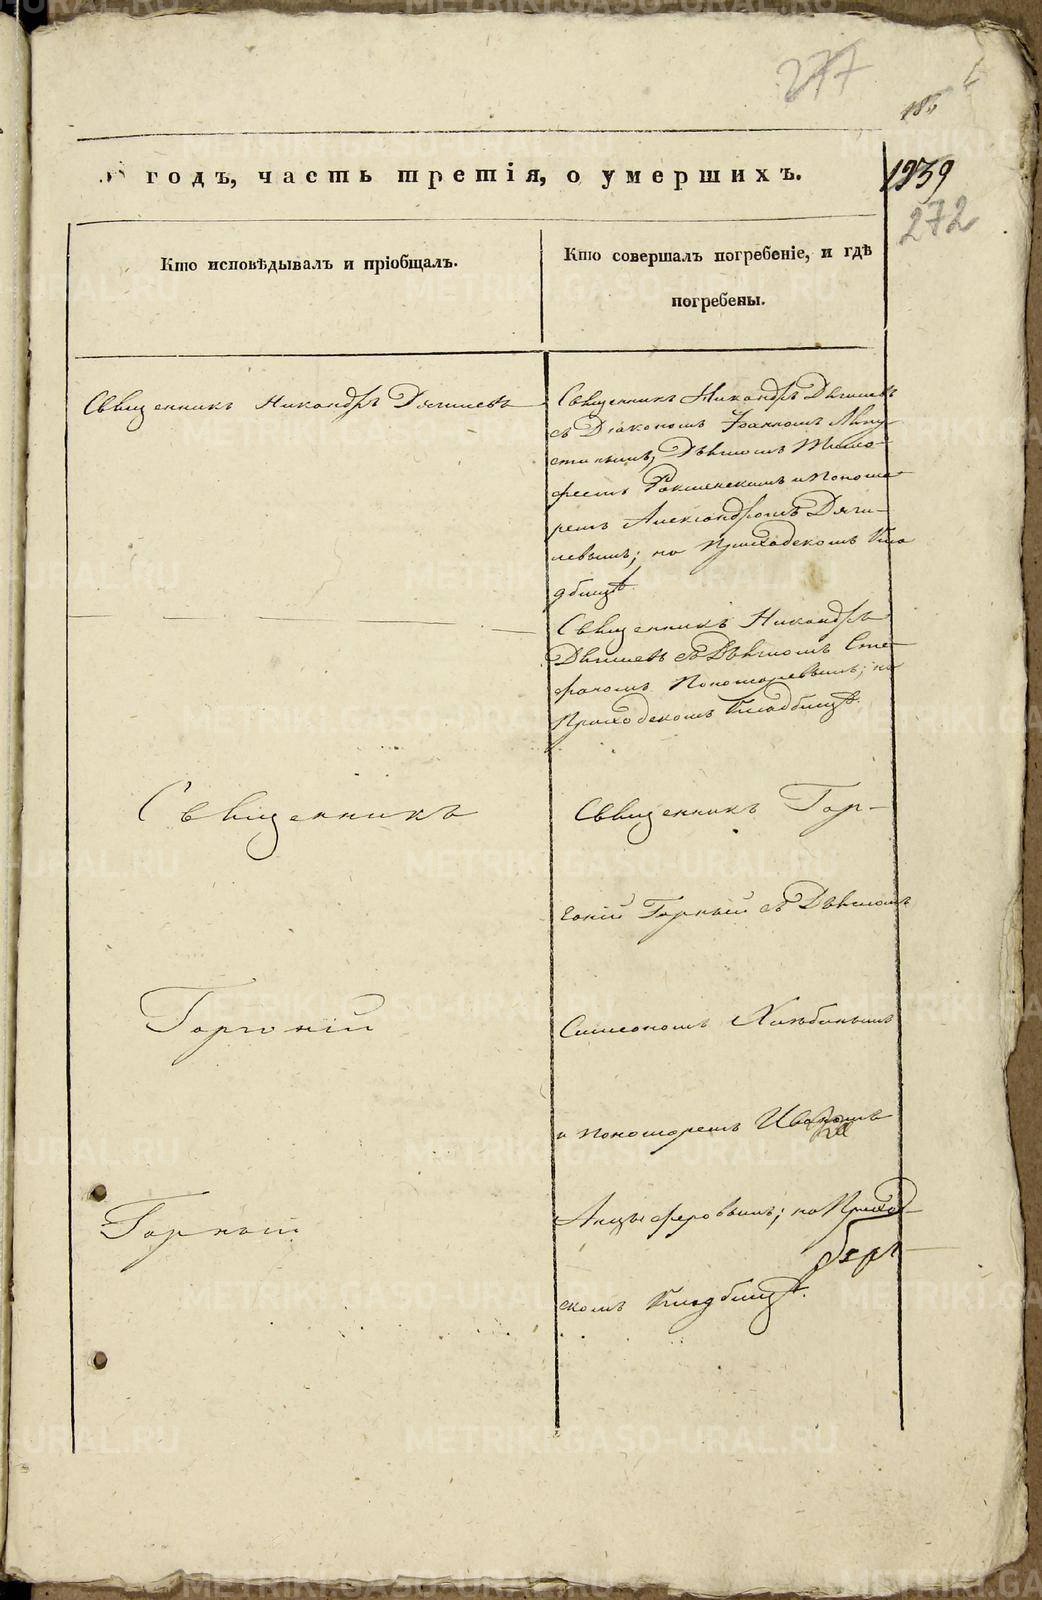 277
185
годъ, часть третія, о умершихъ.
1239
272
Кто исповѣдывалъ и пріобщалъ.
Кто совершалъ погребеніе, и гдѣ
погребены.
Священникъ Никандръ Дягилевъ
Священникъ Никандръ Дягилевъ
съ Діакономъ Іоанномъ
Дьячкомъ Тимо-
и Понома-
ремъ Александромъ Дяги-
левымъ; на Приходскомъ Кла
дбищѣ.
Священникъ Никандръ
Дягилевъ съ Дьячкомъ Сте-
фаномъ Пономаревымъ; на
Приходскомъ Кладбищѣ.
Священникъ
Горгоній
Горный
Священникъ Гор-
гоній Горный съ Дьячкомъ
Симеономъ Хлѣбинымъ
и пономаремъ Иваномъ
Анцыферовымъ; на Приход-
скомъ Кладбищѣ.
METRIKI.GASO-URAL.RU